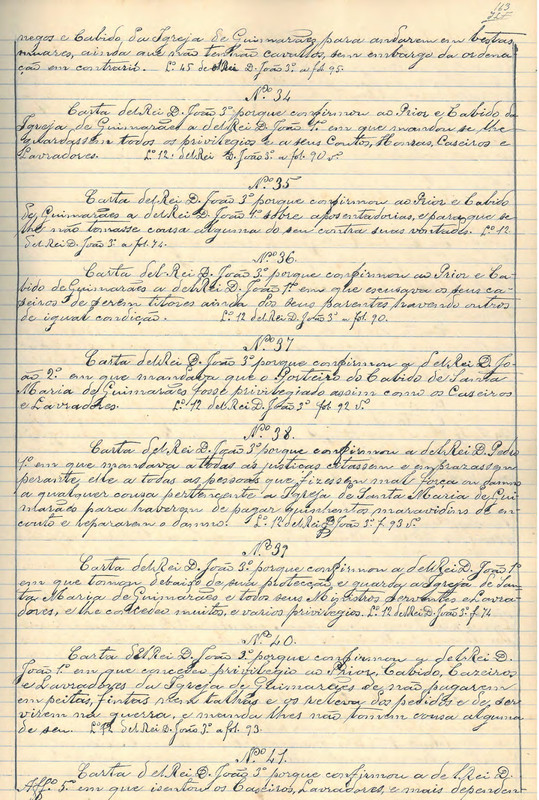 163
negos e Cabido, da Igreja de Guimarães para andarem em bestas
muares, ainda que não tenhão cavallos, sem embargo da ordena-
ção em contrario. L.º 45 de elRei D. João 3.º a fol 95.
N.º 34
Carta delRei D. João 3.º porque confirmou ao Prior e Cabido da
Igreja de Guimarães a delRei D. João 1.º em que mandou se lhe
guardassem todos os privilegios e a seus Coutos, Honras, Caseiros e
Lavradores. L.º 12 delRei D. João 3.º a fol. 90 v.º
N.º 35
Carta delRei D. João 3.º porque confirmou ao Prior e Cabido
de Guimarães a delRei D. João 1.º sobre aposentadorias, e para que se
lhe não tomasse cousa alguma do seu contra suas vontades. L.º 12
delRei D. João 3.º a fol. 74.
N.º 36.
Carta delRei D. João 3.º porque confirmou ao Prior e Ca-
bido de Guimarães a delRei D. João 1.º em que escusava os seus ca-
seiros de serem titores ainda dos seus parentes havendo outros
de igual condição. L.º 12 delRei D. João 3.º a fol. 90.
N.º 37
Carta delRei D. João 3.º porque confirmou a delRei D. Jo-
ão 2.º em que mandava que o Porteiro do Cabido de Santa
Maria de Guimarães fosse privilegiado assim como os Caseiros
e Lavradores. L.º 12 delRei D. João 3.º fol. 92 v.º
N.º 38.
Carta delRei D. João 3.º porque confirmou a delRei D. Pedro
1.º em que mandava a todas as justiças citassem e emprazassem
perante elle a todas as pessoas que fizessem mal força ou damno
a qualquer cousa pertencente a Igreja de Santa Maria de Gui-
marães para haverem de pagar quinhentos maravidins de en-
couto e repararem o damno. L.º 12 delRei D. João 3.º f. 93 v.º
N.º 39
Carta delRei D. João 3.º porque confirmou a delRei D. João 1.º
em que tomou debaixo de sua protecção, e guarda a Igreja de San-
ta Maria de Guimarães e todos seus Ministros serventes e Lavra-
dores, e lhe concedeu muitos, e varios privilegios. L.º 12 delRei D. João 3.º f. 74
N.º 40.
Carta delRei D. João 3.º porque confirmou a delRei D.
João 1.º em que concedeu privilegio ao Prior, Cabido, Cazeiros
e Lavradores da Igreja de Guimarães de não pagarem
em peitas, fintas nem talhas e os releva dos pedidos e de ser-
virem na guerra, e manda lhes não tomem cousa alguma
de seu. L.º 12 delRei D. João 3.º a fol. 93.
N.º 41.
Carta delRei D. João 3.º porque confirmou a delRei D.
Aff.º 5.º em que isentou os Caseiros, Lavradores, e mais dependen-